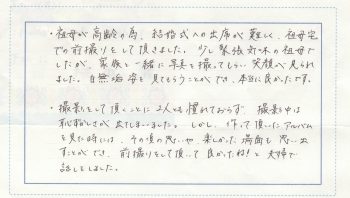 ・祖母が高齢の為、結婚式への出席が難しく、祖母宅
での前撮りをして頂きました。少し緊張気味の祖母で
したが、家族と一緒に写真を撮ってもらい笑顔が見られ
ました。白無垢姿を見てもらうことができ、本当に良かったです。
・撮影をして頂くことに2人とも慣れておらず、撮影中は
恥ずかしさが出てしまいました。しかし、作って頂いたアルバム
を見た時には、その頃の思いや楽しかった場面を思い出
すことができ、前撮りをして頂いて良かったね!と夫婦で
話をしました。